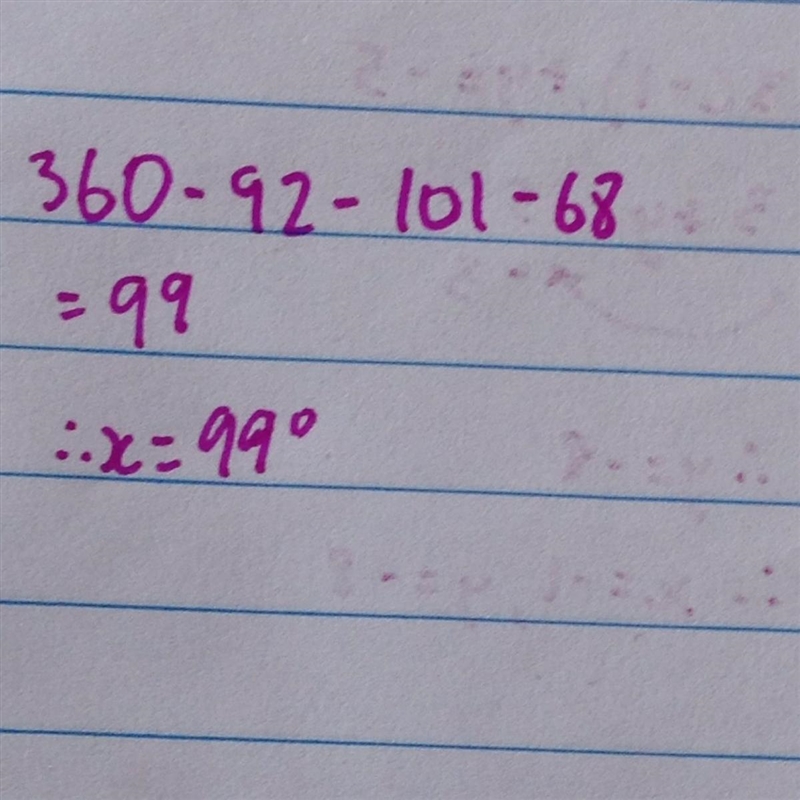 360 - 92 - 101 - 68
= 99
∴ x = 99°